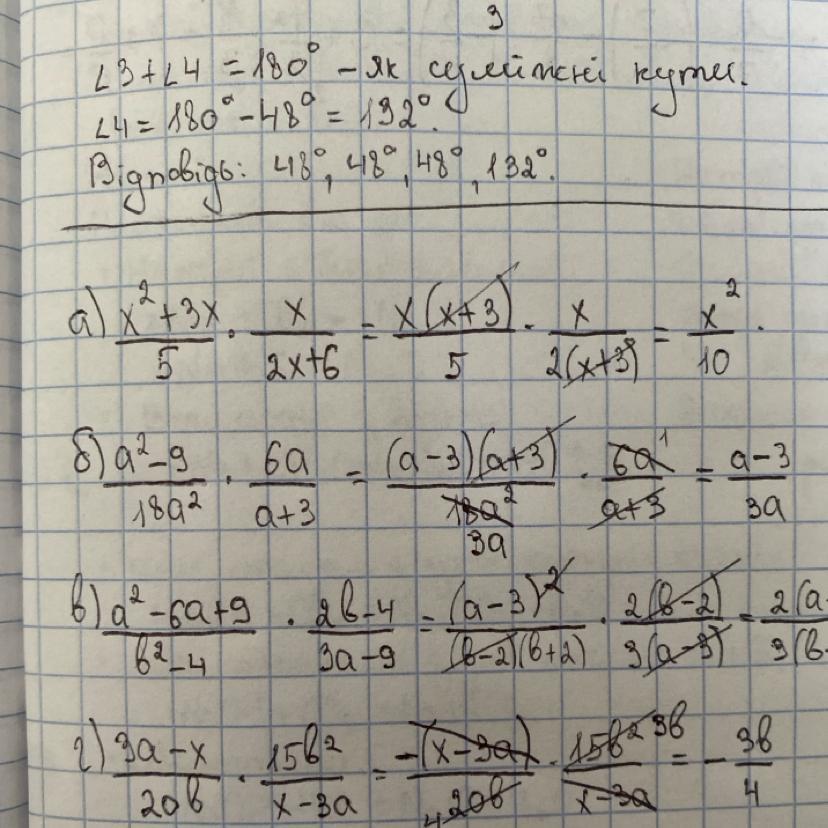 3
∠3+∠4 = 180° – як суміжні кути.
∠4 = 180° – 48° = 132°.
Відповідь: 48°, 48°, 48°, 132°.
а) (x² + 3x)/5 · x/(2x+6) = x(x+3)/5 · x/2(x+3) = x²/10.
б) (a² – 9)/18a² · 6a/(a+3) = (a–3)(a+3)/18a² 3a · 6a 1/(a+3) = (a–3)/3a
в) (a² – 6a+9)/(b² – 4) · (2b–4)/(3a–9) = (a–3)²/(b–2)(b+2) · 2(b–2)/3(a–3) = 2(a-/3(b-
г) (3a – x)/20b · 15b²/(x – 3a) = –(x – 3a)/20b 4 · 15b² 3b/(x–3a) = – 3b/4